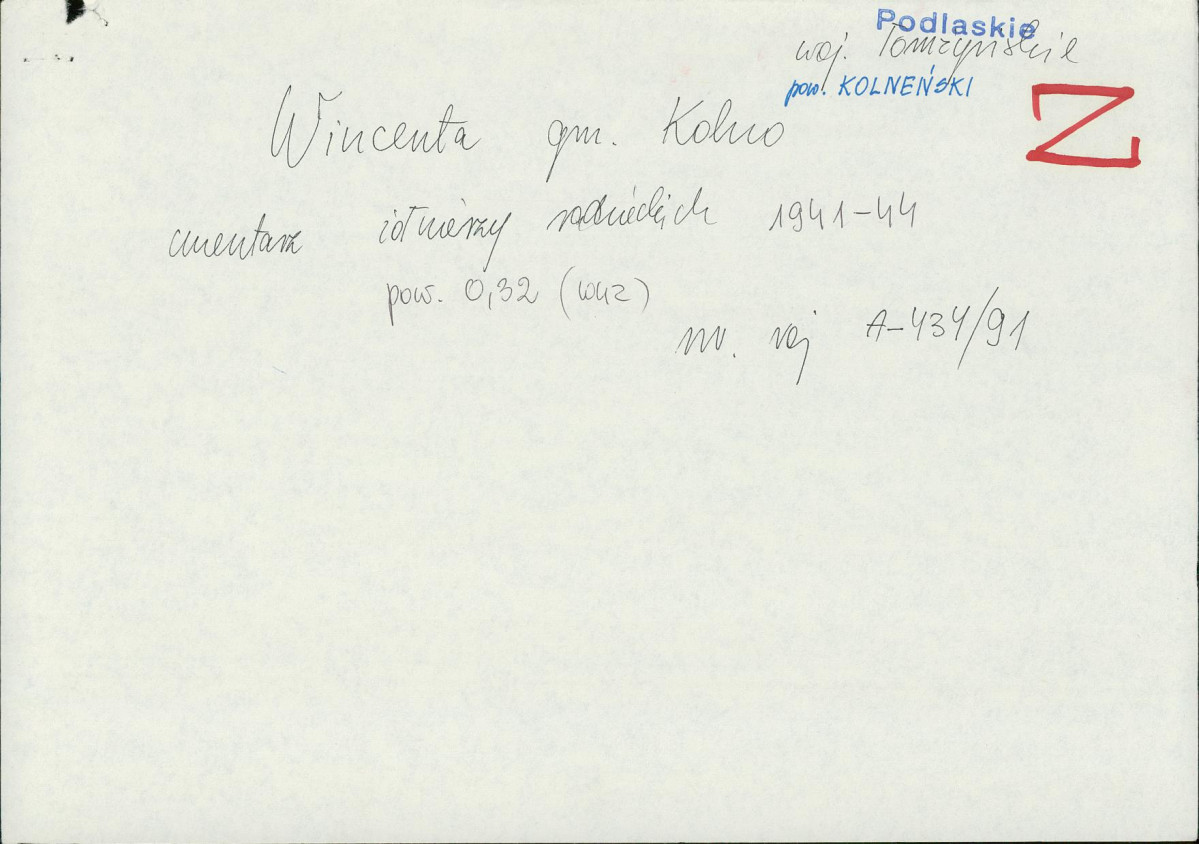 Podlaskie
woj. Łomżyńskie
pow. KOLNEŃSKI
Z
Wincenta gm. Kolno
cmentarz żołnierzy radzieckich 1941-44
pow. 0,32 (wuz)
nr. rej A-434/91